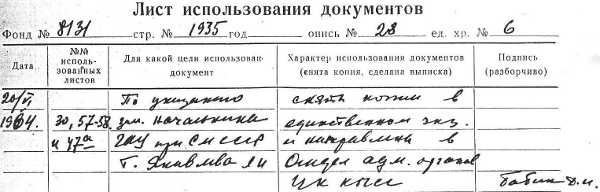 Лист использования документов
Фонд № 8131 стр. № 1935 год опись № 28 ед. хр. № 6
Дата
№№ исполь-зованных листов
Для какой цели использован документ
Характер использования документов (снята копия, сделана выписка)
Подпись (разборчиво)
20/VI По указанию сняты копии в
1964. 30, 57-58 зам. начальника единственном экз.
и 47а ГАУ при СМ СССР и направлены в
т. Яковлева Отдел адм. органов
ЦК КПСС Бабин